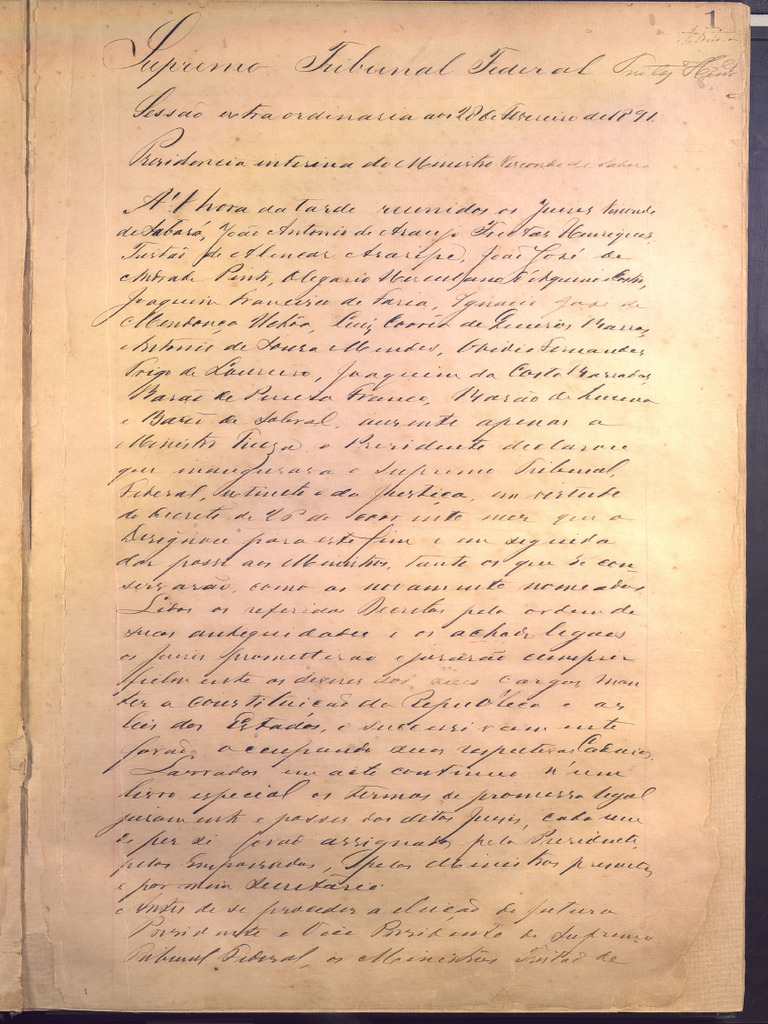 1
Supremo Tribunal Federal Freitas Henr
Sessão extraordinaria aos 28 de Fevereiro de 1891.
Presidencia interina do Ministro Visconde de Sabará
Á 1 hora da tarde reunidos os Juizes Visconde
de Sabará, João Antonio de Araujo Freitas Henriques,
Tristão de Alencar Araripe, João José de
Andrade Pinto, Olegario Herculano d'Aquino e Castro,
Joaquim Francisco de Faria, Ignacio José de
Mendonça Uchôa, Luiz Corrêa de Queiros Barros,
Antonio de Souza Mendes, Ovidio Fernandes
Trigo de Loureiro, Joaquim da Costa Barradas,
Barão de Pereira Franco, Barão de Lucena
e Barão de Sobral, ausente apenas o
Ministro Piza, o Presidente declarou
que inaugurava o Supremo Tribunal
Federal, da Justiça, em virtude
do Decreto de 26 de mez que o
Designou para este fim e em seguida
dar posse aos Ministros, tanto os que se con
servarão, como os novamente nomeados.
Lidos os referidos Decretos pela ordem de
suas antiguidades e os achados legaes
os juizes prometterão e jurarão cumprir
fielmente os deveres dos seus cargos, man
ter a constituição da Republica e as
leis dos Estados, e successivamente
forão occupando suas respectivas Cadeiras.
Lavrados em acto continuo n'um
livro especial os termos de promessa legal
juramento e posses dos ditos Juizes, cada um
de per si forão assignados pelo Presidente,
pelos Empossados, pelos Ministros presentes
e por mim Secretario.
Antes de se proceder a eleição do futuro
Presidente e Vice Presidente do Supremo
Tribunal Federal, os Ministros Tristão de